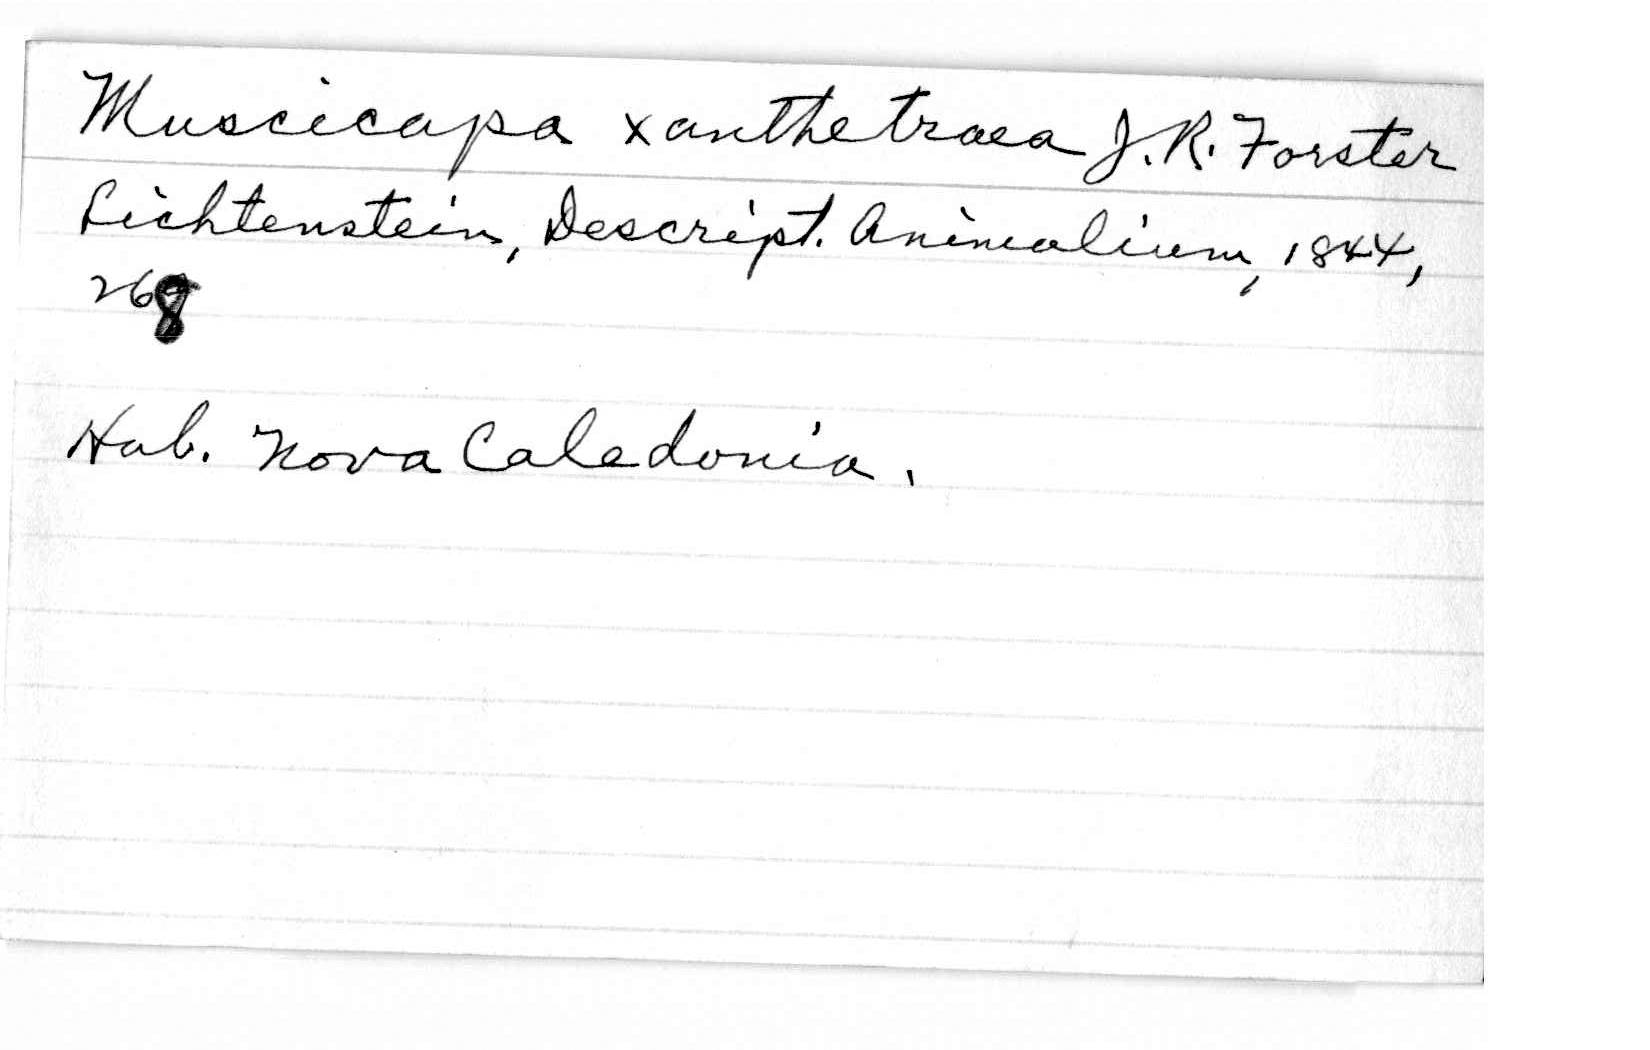 Muscicapa xanthetraea J. R. Forster
Lichtenstein, Descript. Animalium, 1844,
268
Hab. Nova Caledonia.